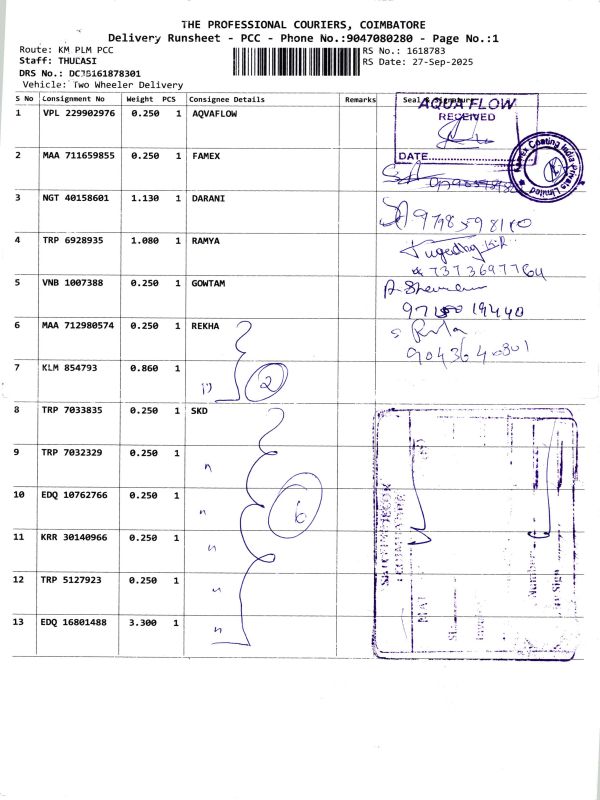 THE PROFESSIONAL COURIERS, COIMBATORE
Delivery Runsheet - PCC - Phone No.:9047080280 - Page No.:1
Route: KM PLM PCC RS No.: 1618783
Staff: THULASI RS Date: 27-Sep-2025
DRS No.: DC35161878301
Vehicle: Two Wheeler Delivery
S No Consignment No Weight PCS Consignee Details Remarks Seal & Signature
1 VPL 229902976 0.250 1 AQVAFLOW
AQUA FLOW
RECEIVED
DATE
Famex Coating India Private Limited
2 MAA 711659855 0.250 1 FAMEX
3 NGT 40158601 1.130 1 DARANI
9798598110
4 TRP 6928935 1.080 1 RAMYA
7373697764
5 VNB 1007388 0.250 1 GOWTAM
6 MAA 712980574 0.250 1 REKHA
9043640301
7 KLM 854793 0.860 1 " 2
8 TRP 7033835 0.250 1 SKD
9 TRP 7032329 0.250 1 "
10 EDQ 10762766 0.250 1 " 6
11 KRR 30140966 0.250 1 "
12 TRP 5127923 0.250 1 "
13 EDQ 16801488 3.300 1 "